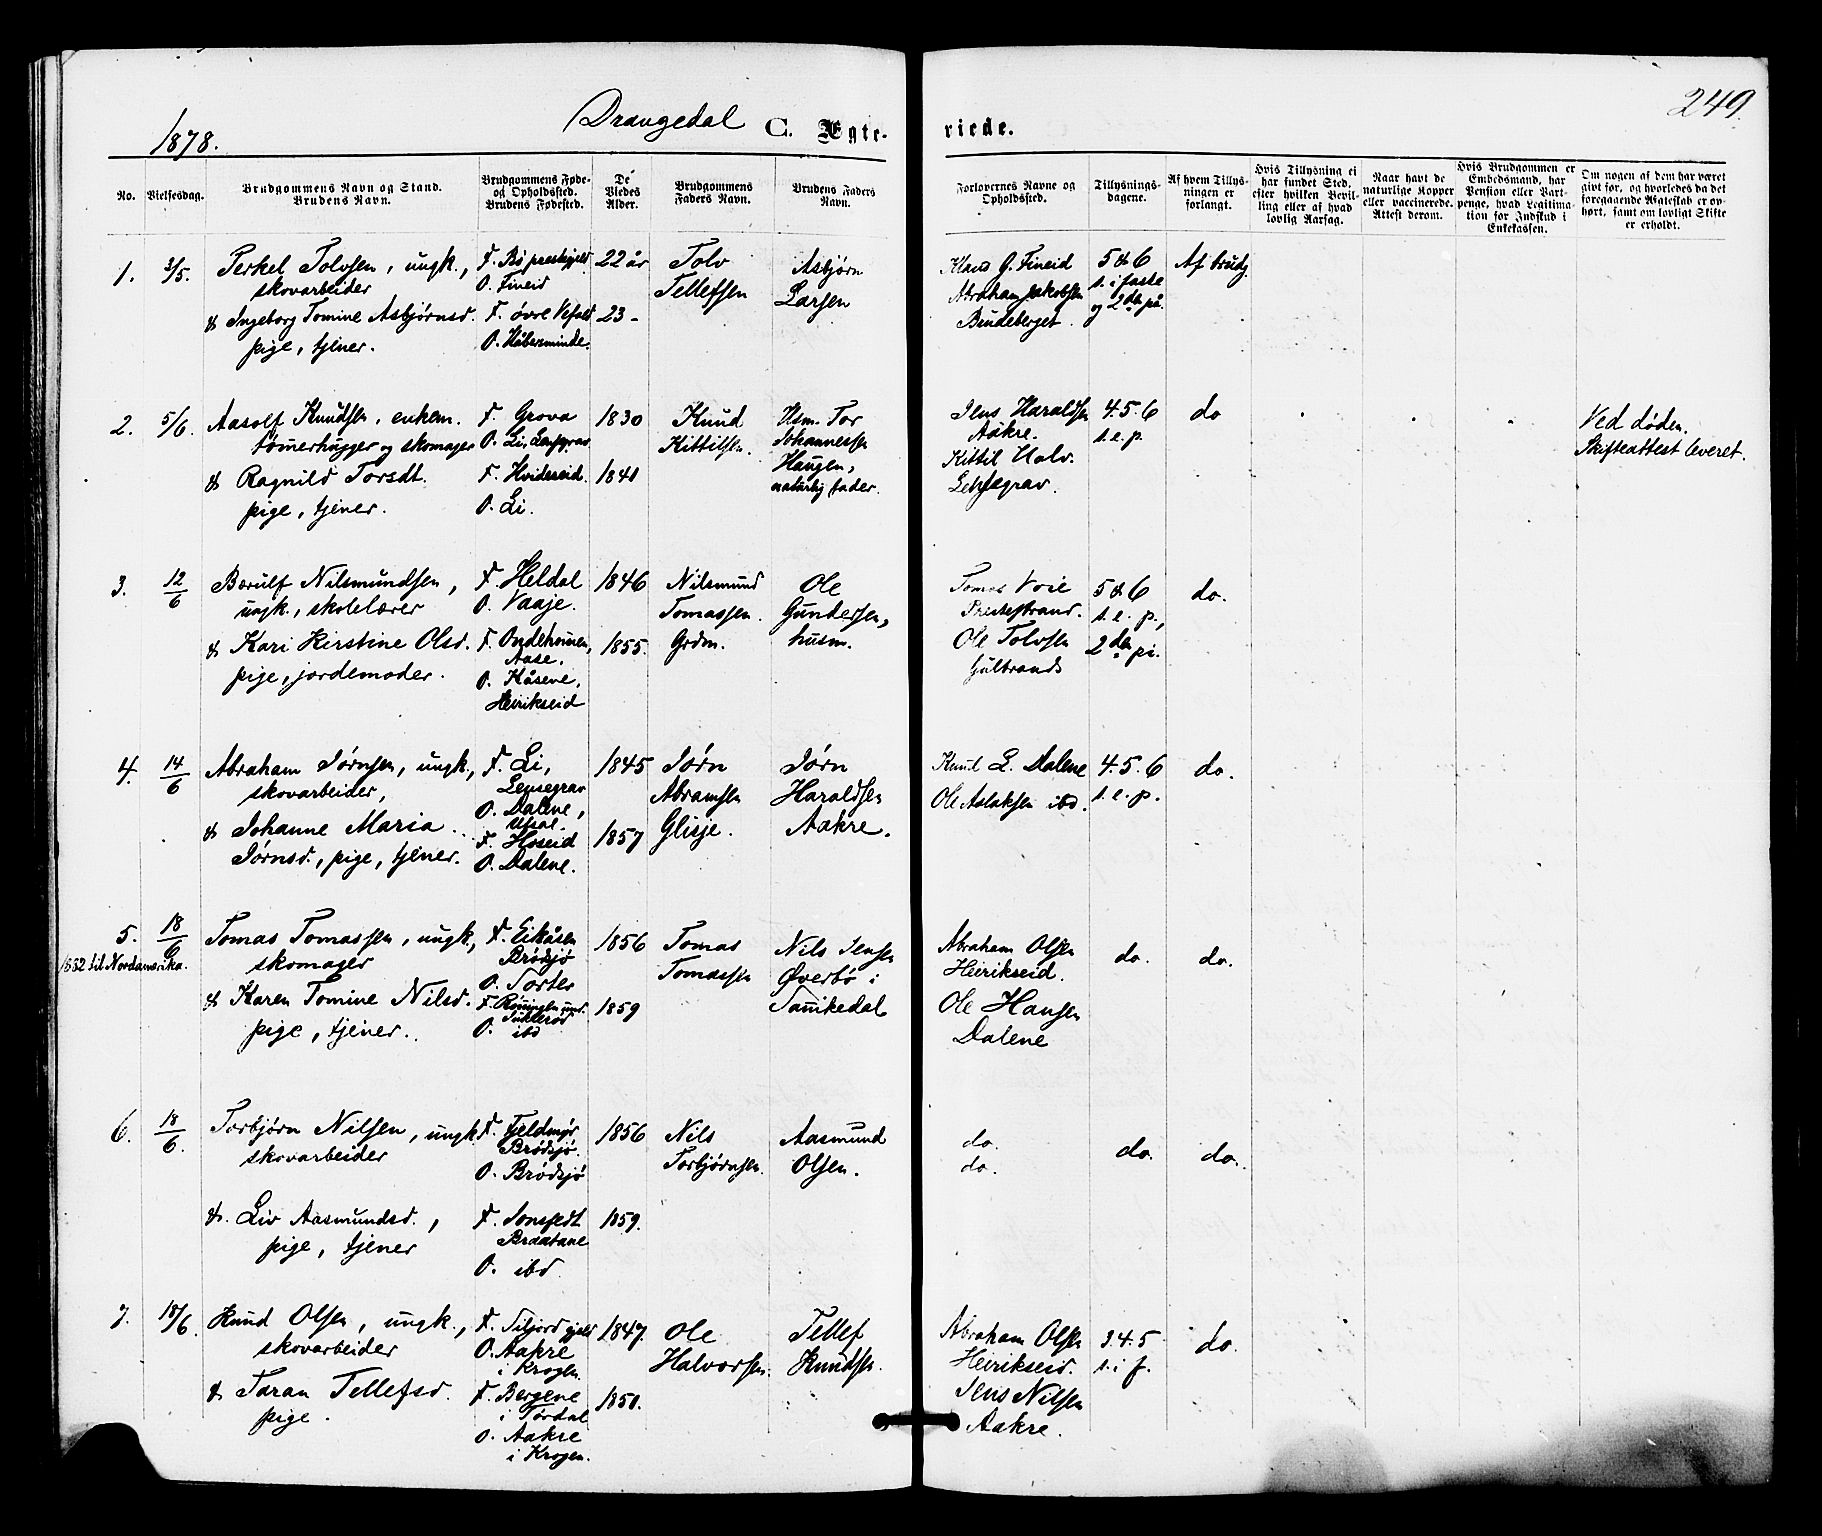 1878.
Drangedal C. Egte-
viede.
249.
No.
Vielsesdag.
Brudgommens Navn og Stand.
Brudens Navn.
Brudgommens Føde-
og Opholdssted.
Brudens Fødested.
De
Viedes
Alder.
Brudgommens
Faders Navn.
Brudens Faders
Navn.
Forlovernes Navne og
Opholdssted.
Tillysnings-
dagene.
Af hvem Tillys-
ningen er
forlangt.
Hvis Tillysning ei
har fundet Sted,
efter hvilken Bevil-
ling eller af hvad
lovlig Aarsag.
Naar havt de
naturlige Kopper
eller vaccinerede.
Attest derom.
Hvis Brudgommen er
Embedsmand, har
Pension eller Vart-
penge, hvad Legitima-
tion for Indskud i
Enkekassen.
Om nogen af dem har været
givt før, og hvorledes da det
foregaaende Ægteskab er op-
hørt, samt om lovligt Skifte
er erholdt.
1.
3/5.
Terkel Tolvsen, ungk.,
skovarbeider
& Ingeborg Tomine Asbjørnsd.
pige, tjener.
F. Bø prestegjeld
O. Fineid
F. øvre Vefald
O.
22 år
23 -
Tolv
Tellefsen
Asbjørn
Larsen
G. Fineid
Abraham Jakobsen
Bendeberget.
5 & 6
s. i faste
og 2den på.
Af brudg.
2.
5/6.
Aasolf Knudsen, enkem.
tømerhugger og skomager
& Ragnild Torsdt.
pige, tjener.
F. Grova
O. Li, Lensegrav
F. Hvideseid.
O. Li.
1830
1841
Knud
Kittilsen.
Hsm. Tor
Johannessen
Haugen,
naturlig fader.
Jens Haraldsen
Aakre.
Kittil Halv.
Lensegrav.
4.5.6
s. e. p.
do
Ved døden.
Skifteattest leveret.
3.
12/6
Bærulf Nilsmundsen,
ungk., skolelærer
& Kari Kirstine Olsd.
pige, jordemoder.
F. Heldal
O. Vaaje.
F.
Aase.
O. Kåsene,
Heirikseid
1846
1855.
Nilsmund
Tomassen.
Grdm.
Ole
Gundersen,
husm.
Tomas Voie
Prestestrand.
Ole Tolvsen
Gulbrands
5 & 6
s. e. p.,
2den pi.
do.
4.
14/6
Abraham Jørnsen, ungk.,
skovarbeider,
& Johanne Maria
Jørnsd., pige, tjener.
F. Li,
Lensegrav
O. Dalene,
Ufsal.
F. Høseid
O. Dalene.
1845
1857
Jørn
Abramsen
Glisje.
Jørn
Haraldsen
Aakre.
Knud L. Dalene
Ole Aslaksen ibd.
4.5.6
s. e. p.
do.
5.
18/6.
1882 til Nordamerika.
Tomas Tomassen, ungk.,
skomager
& Karen Tomine Nilsd.
pige, tjener.
F. Eikåsen
Brødsjø
O. Torter
F.
O. ibd
1856
1859
Tomas
Tomassen
Nils Jensen
Øverbø i
Sanikedal
Abraham Olsen
Heirikseid.
Ole Hansen
Dalene
do.
do.
6.
18/6.
Torbjørn Nilsen, ungk
skovarbeider
&. Liv Aasmundsd.,
pige, tjener
F.
Brødsjø.
O. Brødsjø
F.
Braatane
O. ibd.
1856
1859.
Nils
Torbjørnsen.
Aasmund
Olsen.
do.
do.
do.
do.
7.
18/6.
Knud Olsen, ungk.,
skovarbeider
& Taran Tellefsd.
pige.
F.
O. Aakre
i Krogen
F. Bergene
i Tørdal
O. Aakre
i Krogen.
1847.
1850.
Ole
Halvorsen.
Tellef
Knudsen.
Abraham Olsen
Heirikseid.
Jens Nilsen
Aakre.
3.4.5
s. i f.
do.